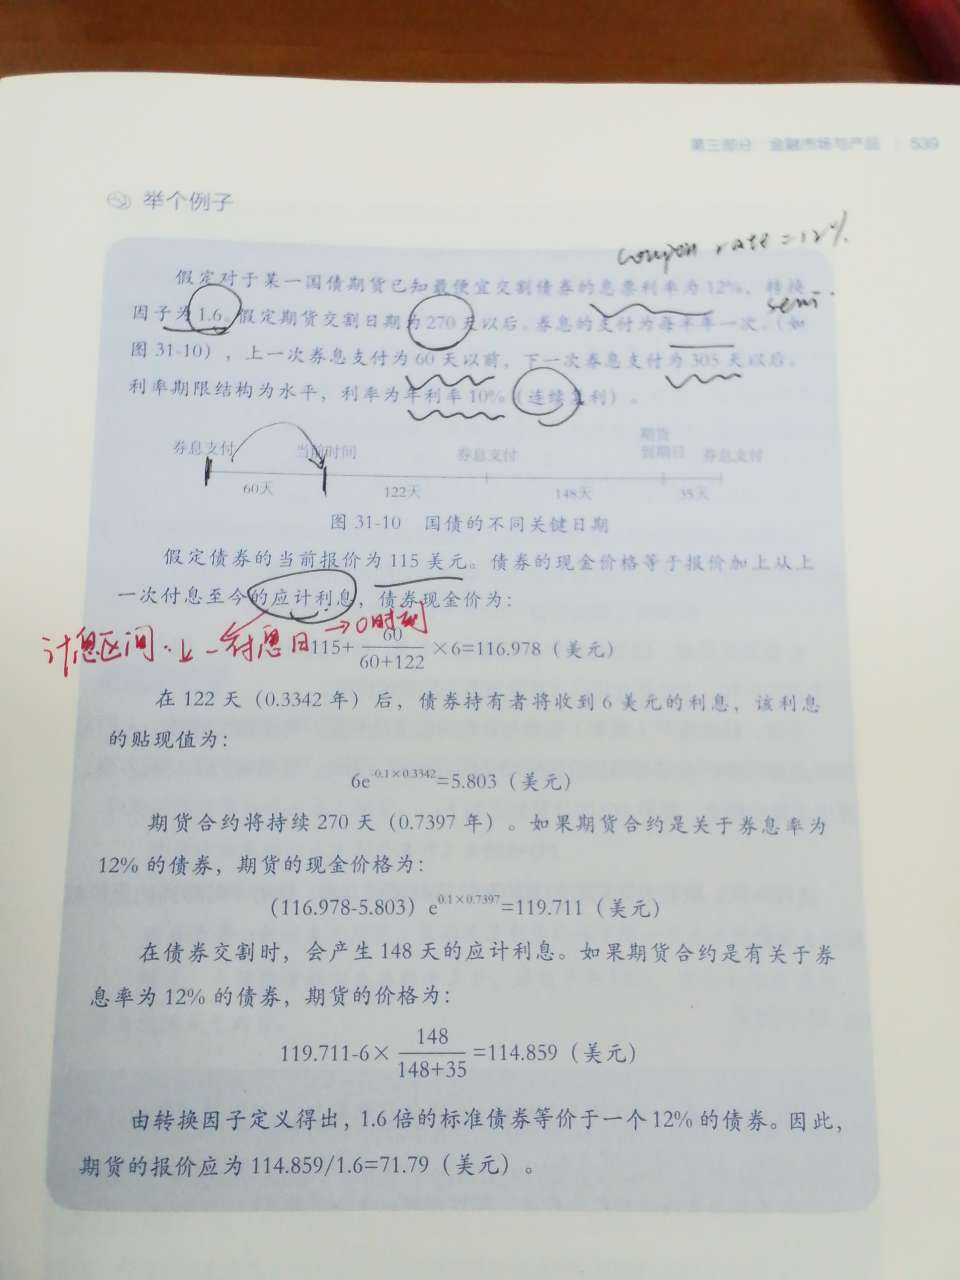 第三部分 金融市场与产品 | 539
举个例子
coupon rate = 12%
假定对于某一国债期货已知最便宜交割债券的息票利率为12%，转换
semi.
因子为1.6。假定期货交割日期为270天以后。券息的支付为每半年一次。（如
图31-10），上一次券息支付为60天以前，下一次券息支付为305天以后。
利率期限结构为水平，利率为年利率10%（连续复利）。
券息支付 当前时间 券息支付 期货到期日 券息支付
60天 122天 148天 35天
图 31-10 国债的不同关键日期
假定债券的当前报价为115美元。债券的现金价格等于报价加上从上
一次付息至今的应计利息，债券现金价为：
计息区间：上一付息日→0时刻
115+60/(60+122)×6=116.978（美元）
在122天（0.3342年）后，债券持有者将收到6美元的利息，该利息
的贴现值为：
6e^-0.1×0.3342=5.803（美元）
期货合约将持续270天（0.7397年）。如果期货合约是关于券息率为
12%的债券，期货的现金价格为：
(116.978-5.803) e^0.1×0.7397=119.711（美元）
在债券交割时，会产生148天的应计利息。如果期货合约是有关于券
息率为12%的债券，期货的价格为：
119.711-6×148/(148+35)=114.859（美元）
由转换因子定义得出，1.6倍的标准债券等价于一个12%的债券。因此，
期货的报价应为114.859/1.6=71.79（美元）。